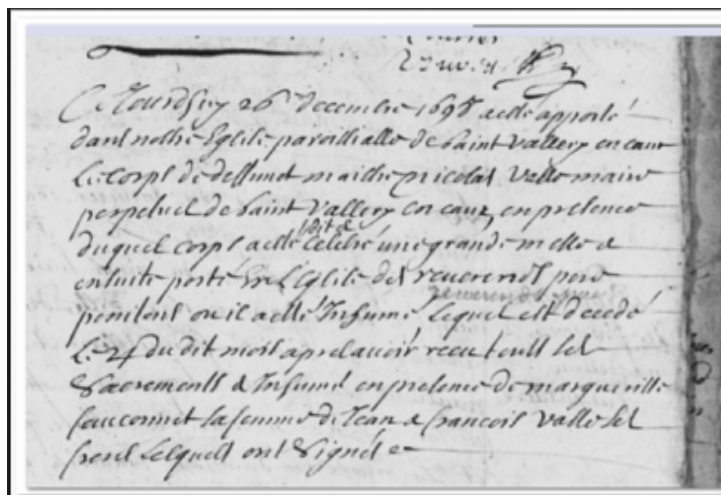 Ce Jourdhuy 26e decembre 1698 a esté apporté
dans nostre Eglise paroissialle de Saint Vallery en caux
Le corps de deffunct maistre nicolas Valle maire
perpetuel de Saint Vallery en caux, en presence
duquel corps a esté dit et celebré une grande messe &
ensuite porté En L'Eglise des reverends pere
penitens ou il a esté Inhumé Lequel est decedé
Le 24 du dit mois apres avoir receu touts les
Sacrements & Inhumé en presence de marguerille
fauconnet sa femme de Jean & francois Valle ses
freres Lesquels ont Signés